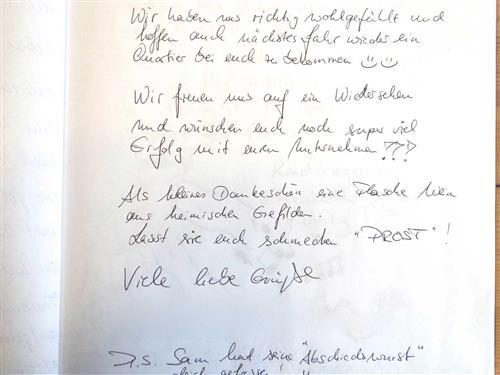 Wir haben uns richtig wohlgefühlt und
hoffen auch nächstes Jahr wieder ein
Quartier bei euch zu bekommen ☺☺
Wir freuen uns auf ein Wiedersehen
und wünschen euch noch super viel
Erfolg mit euren Unternehmen???
Als kleines Dankeschön eine Flasche Wein
aus heimischen Gefilden.
Lasst sie euch schmecken "PROST"!
Viele liebe Grüße
P.S. Sam hat seine "Abschiedswurst"